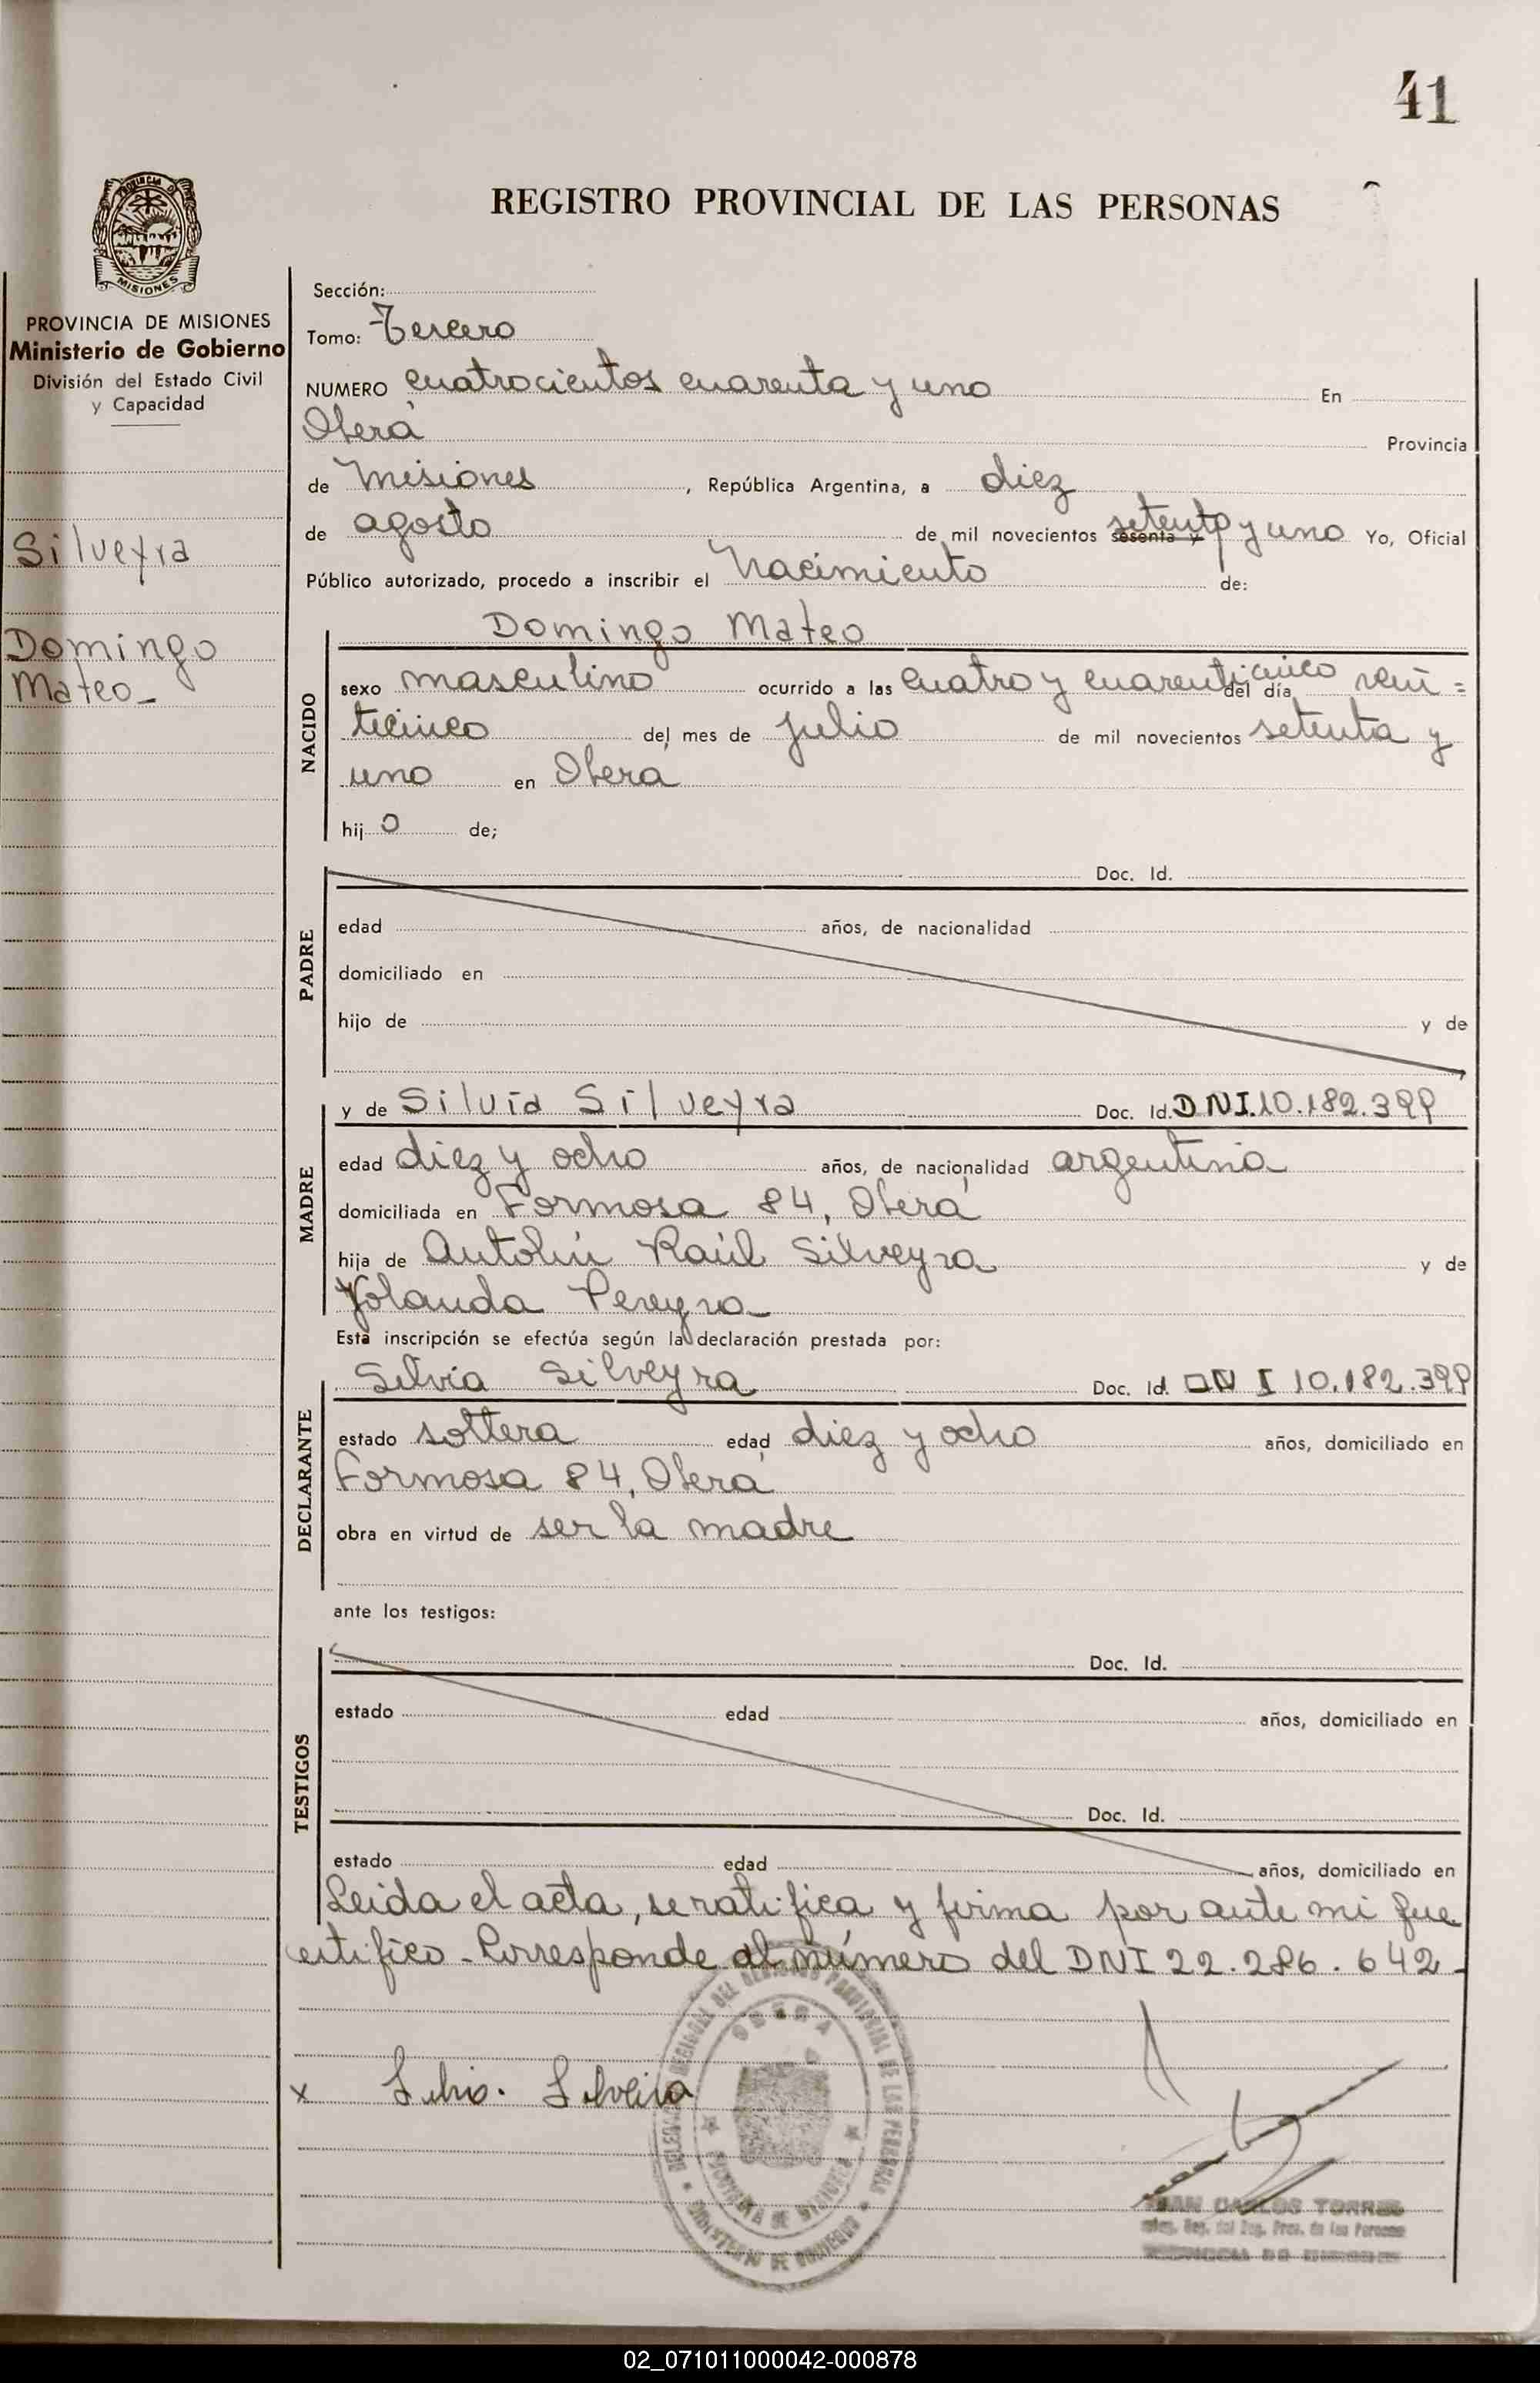 41
REGISTRO PROVINCIAL DE LAS PERSONAS
MISIONES
PROVINCIA DE MISIONES
Ministerio de Gobierno
División del Estado Civil
y Capacidad
Silveyra
Domingo
Mateo_
Sección:
Tomo: Tercero
NUMERO cuatrocientos cuarenta y uno En
Oberá Provincia
de Misiones, República Argentina, a diez
de agosto de mil novecientos sesenta y setenta y uno Yo, Oficial
Público autorizado, procedo a inscribir el Nacimiento de:
NACIDO
Domingo Mateo
sexo masculino ocurrido a las cuatro y cuarenticinco del día vein=
ticinco del mes de julio de mil novecientos setenta y
uno en Oberá
hijo de;
PADRE
Doc. Id.
edad años, de nacionalidad
domiciliado en
hijo de y de
MADRE
y de Silvia Silveyra Doc. Id. DNI.10.182.399
edad diez y ocho años, de nacionalidad argentina
domiciliada en Formosa 84, Oberá
hija de Antolín Raúl Silveyra y de
Yolanda Pereyra
Esta inscripción se efectúa según la declaración prestada por:
DECLARANTE
Silvia Silveyra Doc. Id. DNI 10.182.399
estado soltera edad diez y ocho años, domiciliado en
Formosa 84, Oberá
obra en virtud de ser la madre
ante los testigos:
TESTIGOS
Doc. Id.
estado edad años, domiciliado en
Doc. Id.
estado edad años, domiciliado en
Leida el acta, se ratifica y firma por ante mi que
certifico - Corresponde al número del DNI 22.286.642_
x Silvia. Silveira
JUAN CARLOS TORRES
02_071011000042-000878